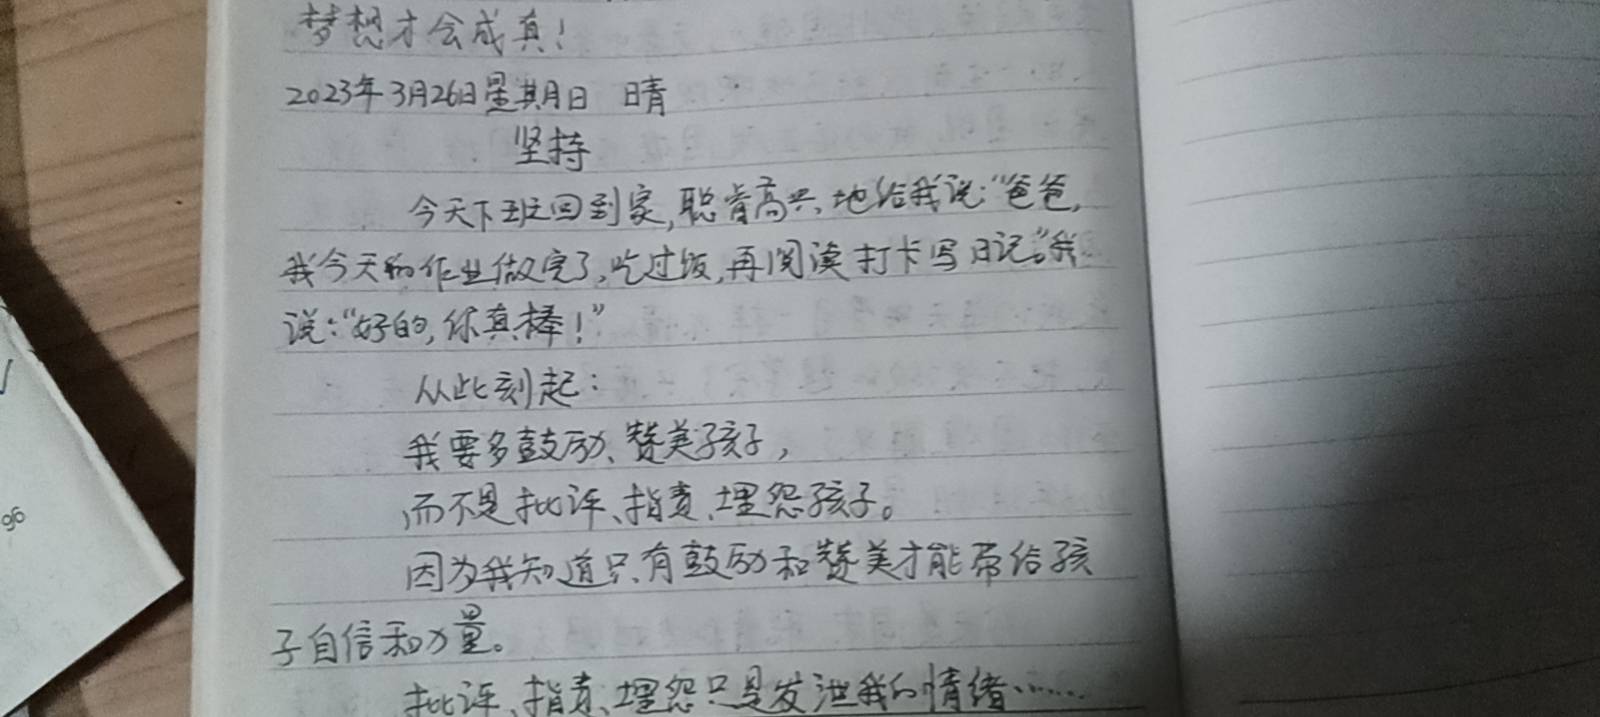 梦想才会成真!
2023年3月26日星期日 晴
坚持
今天下班回到家,聪肯高兴地给我说:“爸爸,
我今天的作业做完了,吃过饭,再阅读打卡写日记。”我
说:“好的,你真棒!”
从此刻起:
我要多鼓励、赞美孩子,
而不是批评、指责、埋怨孩子。
因为我知道只有鼓励和赞美才能带给孩
子自信和力量。
批评、指责、埋怨只是发泄我的情绪……
96